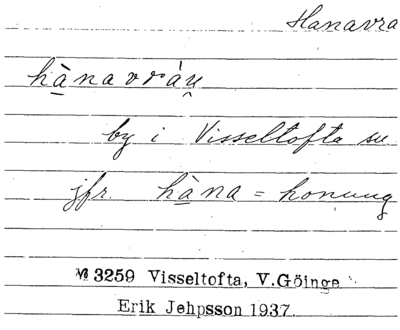 Hanavra
hànavràu̯
by i Visseltofta sn
jfr. hàna = honung
M 3259 Visseltofta, V.Göinge
Erik Jehpsson 1937.